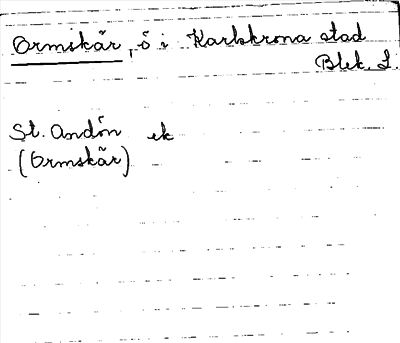 Ormskär, ö i Karlskrona stad
Blek. L.
St. Andön ek
(Ormskär)